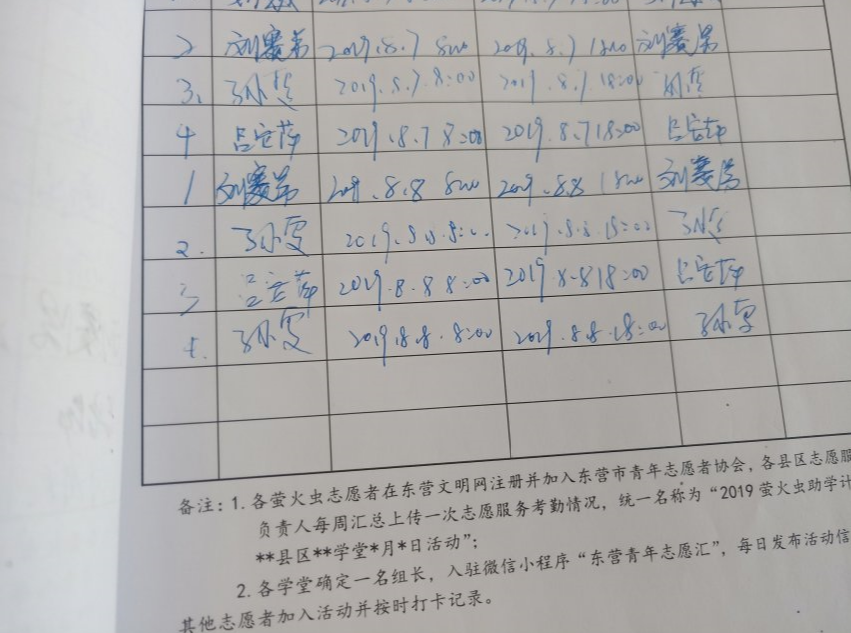 2 刘赛男 2019.8.7 8:00 2019.8.7 18:00 刘赛男
3. 孙雯 2019.8.7 8:00 2019.8.7 18:00
4 吕宝萍 2019.8.7 8:00 2019.8.7 18:00 吕宝萍
1 刘赛男 2019.8.8 8:00 2019.8.8 18:00 刘赛男
2. 孙雯 2019.8.8.8:00 2019.8.8.18:00 孙雯
3 吕宝萍 2019.8.8 8:00 2019.8.8 18:00 吕宝萍
4. 孙雯 2019.8.8.8:00 2019.8.8.18:00 孙雯
备注：1.各萤火虫志愿者在东营文明网注册并加入东营市青年志愿者协会，各县区志愿服
负责人每周汇总上传一次志愿服务考勤情况，统一名称为“2019萤火虫助学计
**县区**学堂*月*日活动”；
2.各学堂确定一名组长，入驻微信小程序“东营青年志愿汇”，每日发布活动信
其他志愿者加入活动并按时打卡记录。